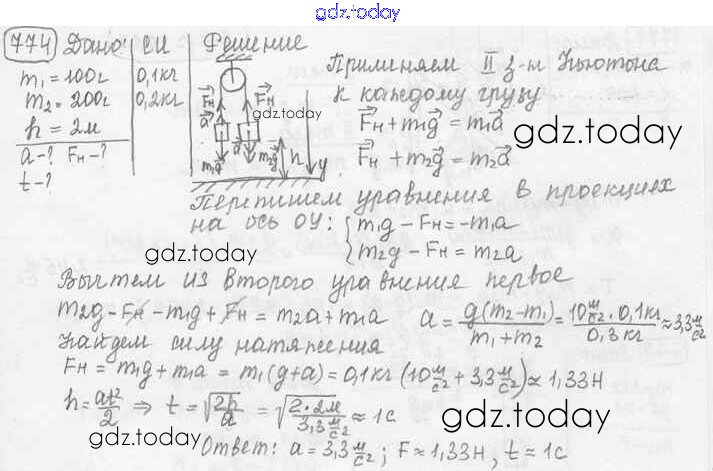 gdz.today
774 Дано: СИ Решение
m₁ = 100г 0,1кг
m₂ = 200г 0,2кг
h = 2м
a-? Fн-?
t-?
Fн Fн
a a
m₁g m₂g h y
gdz.today
Применяем II з-н Ньютона
к каждому грузу
Fн + m₁g = m₁a
gdz.today
Fн + m₂g = m₂a
Перепишем уравнения в проекциях
на ось OY: { m₁g - Fн = -m₁a
m₂g - Fн = m₂a
gdz.today
Вычтем из второго уравнения первое
m₂g - Fн - m₁g + Fн = m₂a + m₁a a = g(m₂-m₁)/(m₁+m₂) = 10 м/с² · 0,1кг/0,3кг ≈ 3,3 м/с²
Найдем силу натяжения
Fн = m₁g + m₁a = m₁(g+a) = 0,1кг (10 м/с² + 3,3 м/с²) ≈ 1,33Н
h = at²/2 ⇒ t = √(2h/a) = √(2·2м/3,3 м/с²) ≈ 1с
gdz.today
gdz.today
Ответ: a = 3,3 м/с²; F ≈ 1,33Н, t ≈ 1с